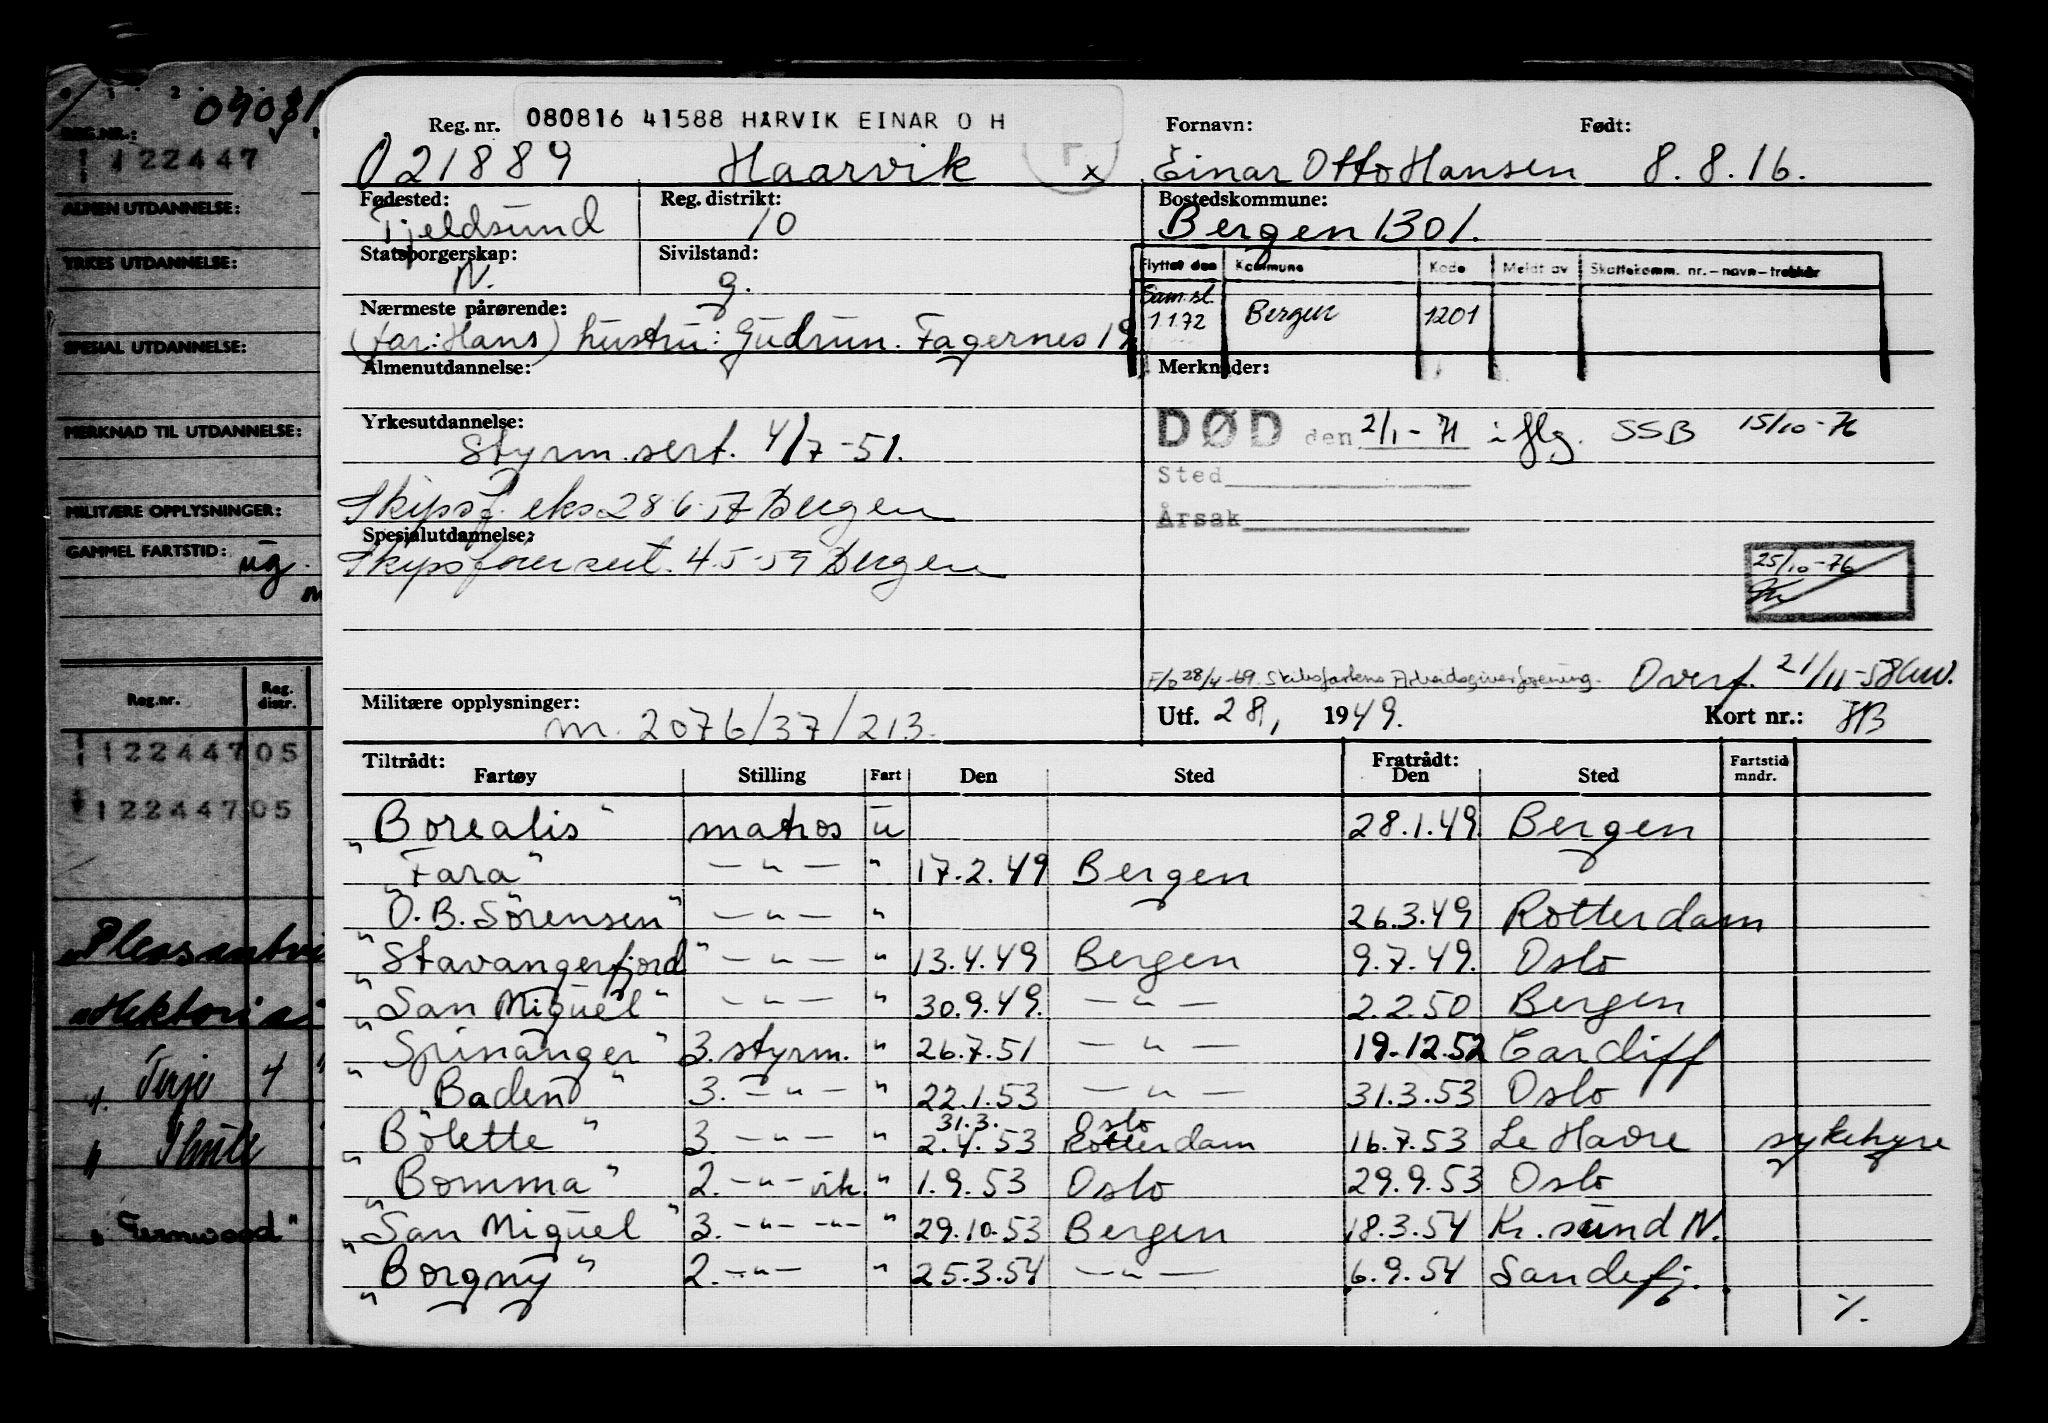 REG.NR.:
122447
ALMEN UTDANNELSE:
YRKES UTDANNELSE:
SPESIAL UTDANNELSE:
MERKNAD TIL UTDANNELSE:
MILITÆRE OPPLYSNINGER:
GAMMEL FARTSTID:
Reg.nr. Reg. distr.
122447 05
122447 05
"Terje 4
"Fernwood"
Reg. nr. 080816 41588 HARVIK EINAR O H Fornavn: Født:
021889 Haarvik x Einar Otto Hansen 8.8.16.
Fødested: Reg. distrikt: Bostedskommune:
Tjeldsund 10 Bergen 1301.
Statsborgerskap: Sivilstand: Flyttet den Kommune Kode Meldt av Skattekomm. nr.-navn-trekkår
N. g.
Sam.sl. 1.1.72 Bergen 1201
Nærmeste pårørende:
(far: Hans) hustru: Gudrun. Fagernes 19
Almenutdannelse: Merknader:
Yrkesutdannelse: DØD den 2/1-71 i flg. SSB 15/10-76
Styrm.sert. 4/7-51.
Sted
Skipsf. eks 28.6.57 Bergen Årsak
Spesialutdannelse:
Skipsførersert. 4.5-59 Bergen 25/10-76
F/o 28/4-69. Skibsfartens Arbeidsgiverforening. Overf. 21/11-58
Militære opplysninger: Utf. 28/1 1949. Kort nr.:
m. 2076/37/213.
Tiltrådt: Fratrådt:
Fartøy Stilling Fart Den Sted Den Sted Fartstid mndr.
"Borealis" matros u 28.1.49 Bergen
"Fara" -"- " 17.2.49 Bergen
"O.B. Sörensen" -"- " 26.3.49 Rotterdam
"Stavangerfjord" -"- " 13.4.49 Bergen 9.7.49. Oslo
"San Miguel" -"- " 30.9.49. -"- 2.2.50 Bergen
"Spinanger" 3. styrm. " 26.7.51 -"- 19.12.52 Cardiff
"Baden" 3. -"- " 22.1.53 -"- 31.3.53 Oslo
31.3. Oslo
"Bolette" 3. -"- " 2.4.53 Rotterdam 16.7.53 Le Havre sykehyre
"Bomma" 2. -"- vik. " 1.9.53 Oslo 29.9.53 Oslo
"San Miguel" 3. -"- -"- " 29.10.53 Bergen 18.3.54 Kr.sund N.
"Borgny" 2. -"- " 25.3.54 -"- 6.9.54 Sandefj.
./.